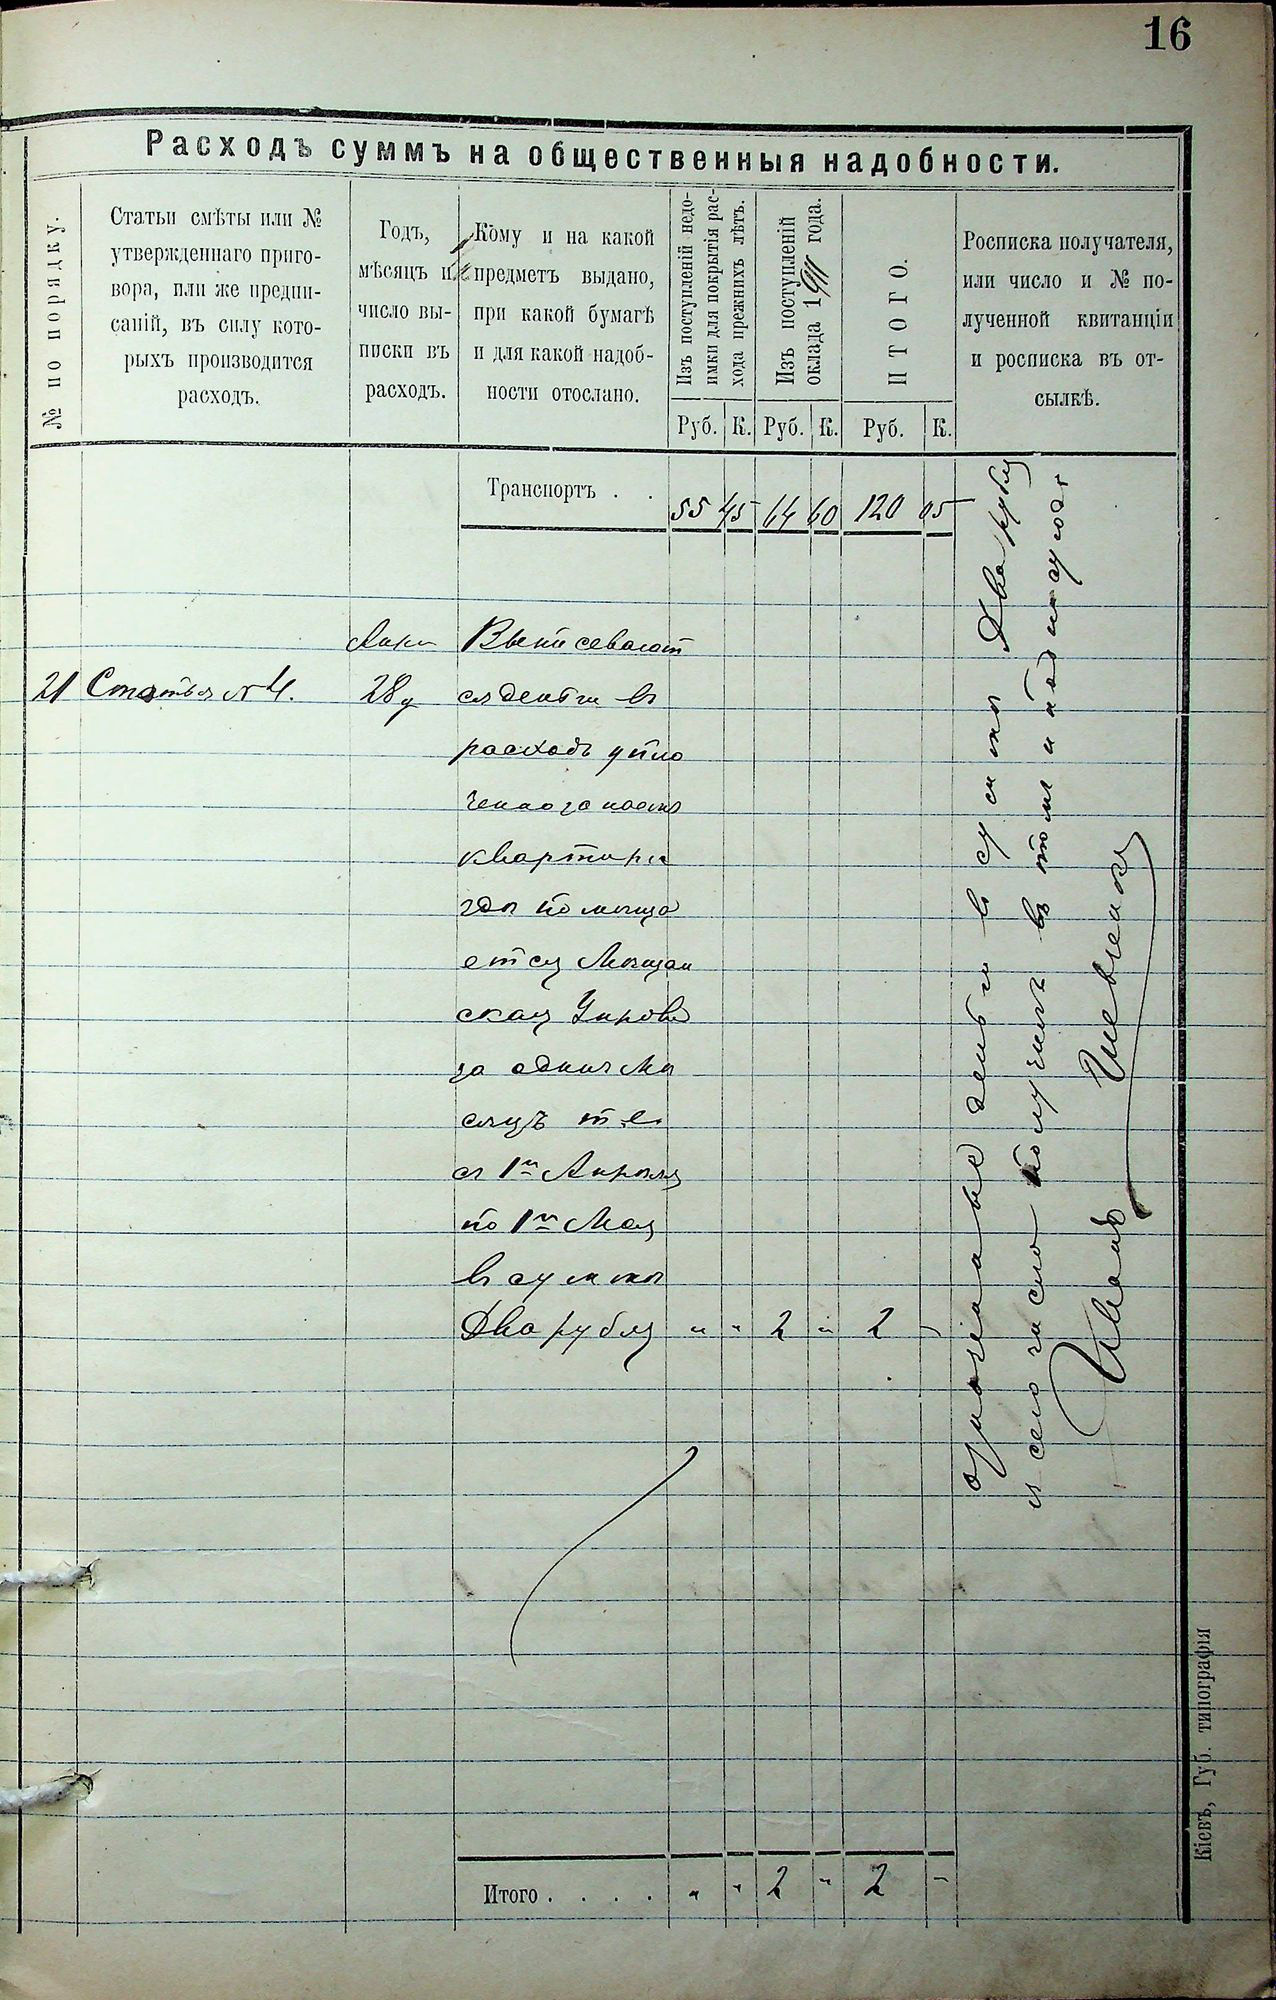 16
Расходъ суммъ на общественныя надобности.
№ по порядку.
Статьи смѣты или №
утвержденнаго приго-
вора, или же предпи-
саній, въ силу кото-
рыхъ производится
расходъ.
Годъ,
мѣсяцъ и
число вы-
писки въ
расходъ.
Кому и на какой
предметъ выдано,
при какой бумагѣ
и для какой надоб-
ности отослано.
Изъ поступленій недо-
имки для покрытія рас-
хода прежнихъ лѣтъ.
Изъ поступленій
оклада 1911 года.
ИТОГО.
Росписка получателя,
или число и № по-
лученной квитанціи
и росписка въ от-
сылкѣ.
Руб. К. Руб. К. Руб. К.
Транспортъ . . 55 45 64 60 120 05
Выписевают
21 Статья № 4. 28 ся деньги въ
расходъ упло
ченно за наемъ
квартиры
гдѣ помѣща
ется Мѣщан
ская Управа
за одинъ мѣ
сяцъ т е
съ 1го Апрѣля
по 1го Мая
въ суммѣ
Два рубля " " 2 " 2 -
Итого . . . . " " 2 " 2 -
означаные деньги въ сумме Два рубля
и сего число получилъ въ томъ и подписуюс
Иванъ
Кіевъ, Губ. типографія